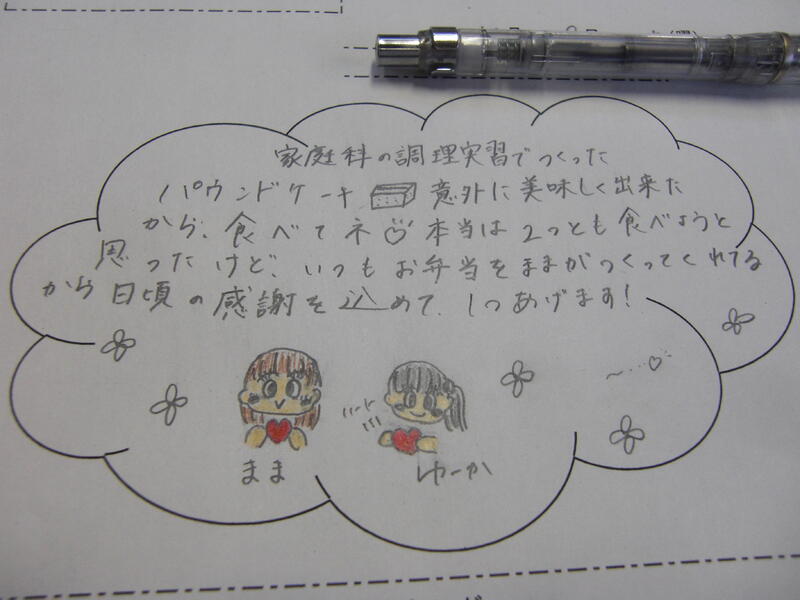 家庭科の調理実習でつくった
パウンドケーキ 意外に美味しく出来た
から、食べてネ 本当は2つとも食べようと
思ったけど、いつもお弁当をままがつくってくれてる
から日頃の感謝を込めて、1つあげます!
まま
ゆーか